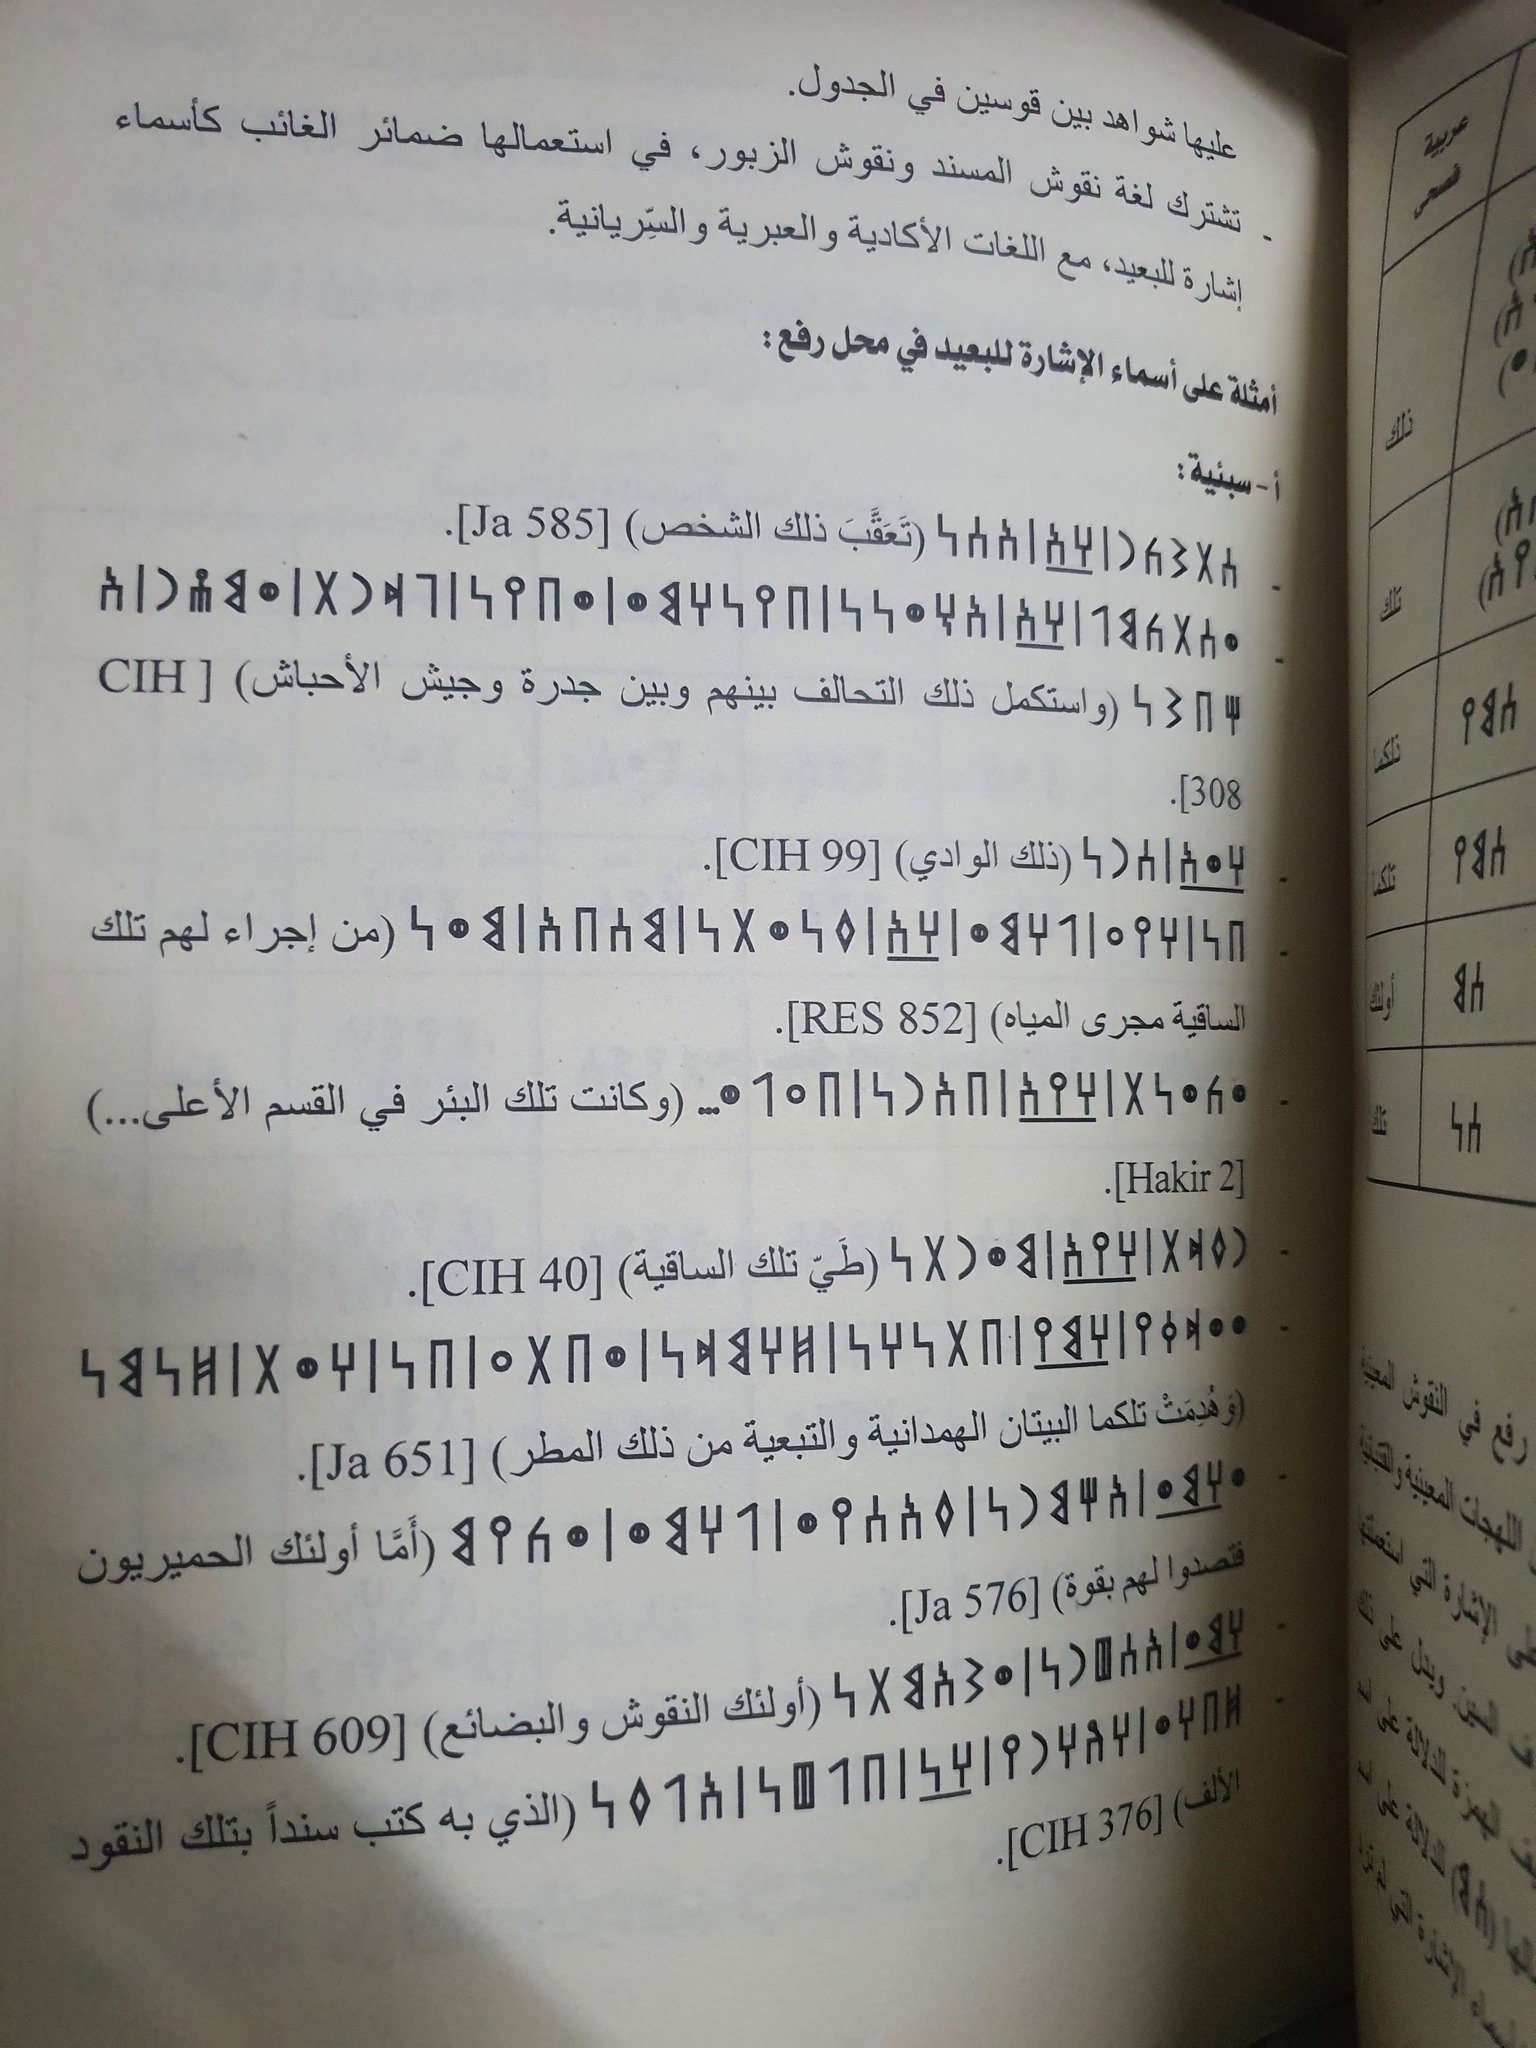 عليها شواهد بين قوسين في الجدول.
- تشترك لغة نقوش المسند ونقوش الزبور، في استعمالها ضمائر الغائب كأسماء
إشارة للبعيد، مع اللغات الأكادية والعبرية والسِّريانية.
أمثلة على أسماء الإشارة للبعيد في محل رفع:
أ- سبئية:
- 𐩪𐩩𐩦𐩫𐩧𐩽𐩠𐩱𐩽𐩱𐩪𐩬 (تَعَقَّبَ ذلك الشخص) [Ja 585].
- 𐩥𐩪𐩩𐩫𐩣𐩡𐩽𐩠𐩱𐩽𐩱𐩭𐩥𐩬𐩬𐩽𐩨𐩺𐩬𐩠𐩣𐩥𐩽𐩥𐩨𐩺𐩬𐩽𐩴𐩵𐩧𐩩𐩽𐩥𐩣𐩮𐩧𐩽𐩱
𐩢𐩨𐩦𐩬 (واستكمل ذلك التحالف بينهم وبين جدرة وجيش الأحباش) [CIH
308].
- 𐩠𐩥𐩱𐩽𐩪𐩧𐩬 (ذلك الوادي) [CIH 99].
- 𐩨𐩬𐩽𐩠𐩺𐩲𐩽𐩡𐩠𐩣𐩥𐩽𐩠𐩱𐩽𐩰𐩬𐩥𐩩𐩬𐩽𐩣𐩪𐩨𐩱𐩽𐩣𐩥𐩬 (من إجراء لهم تلك
الساقية مجرى المياه) [RES 852].
- 𐩥𐩫𐩥𐩬𐩩𐩽𐩠𐩺𐩱𐩽𐩨𐩱𐩧𐩬𐩽𐩨𐩲𐩡𐩥... (وكانت تلك البئر في القسم الأعلى...)
[Hakir 2].
- 𐩧𐩰𐩵𐩩𐩽𐩠𐩺𐩱𐩽𐩣𐩥𐩧𐩩𐩬 (طَيّ تلك الساقية) [CIH 40].
- 𐩥𐩥𐩵𐩤𐩺𐩽𐩠𐩣𐩺𐩽𐩨𐩩𐩬𐩠𐩬𐩽𐩹𐩠𐩣𐩵𐩬𐩽𐩥𐩨𐩩𐩲𐩽𐩨𐩬𐩽𐩠𐩥𐩩𐩽𐩹𐩬𐩣𐩬
(وَهُدِمَتْ تلكما البيتان الهمدانية والتبعية من ذلك المطر) [Ja 651].
- 𐩥𐩠𐩣𐩥𐩽𐩱𐩢𐩣𐩧𐩬𐩽𐩰𐩱𐩪𐩺𐩥𐩽𐩡𐩠𐩣𐩥𐩽𐩥𐩫𐩺𐩣 (أَمَّا أولئك الحميريون
فتصدوا لهم بقوة) [Ja 576].
- 𐩠𐩣𐩥𐩽𐩱𐩪𐩷𐩧𐩬𐩽𐩥𐩦𐩱𐩣𐩩𐩬 (أولئك النقوش والبضائع) [CIH 609].
- 𐩹𐩨𐩠𐩥𐩽𐩠𐩼𐩠𐩧𐩺𐩽𐩠𐩬𐩽𐩨𐩡𐩷𐩬𐩽𐩱𐩡𐩰𐩬 (الذي به كتب سنداً بتلك النقود
الألف) [CIH 376].
عربية
فصحى
ذلك
تلك
ذلكما 𐩪𐩣𐩺
تلكما 𐩪𐩣𐩺
أولئك 𐩪𐩣
تلك 𐩪𐩬